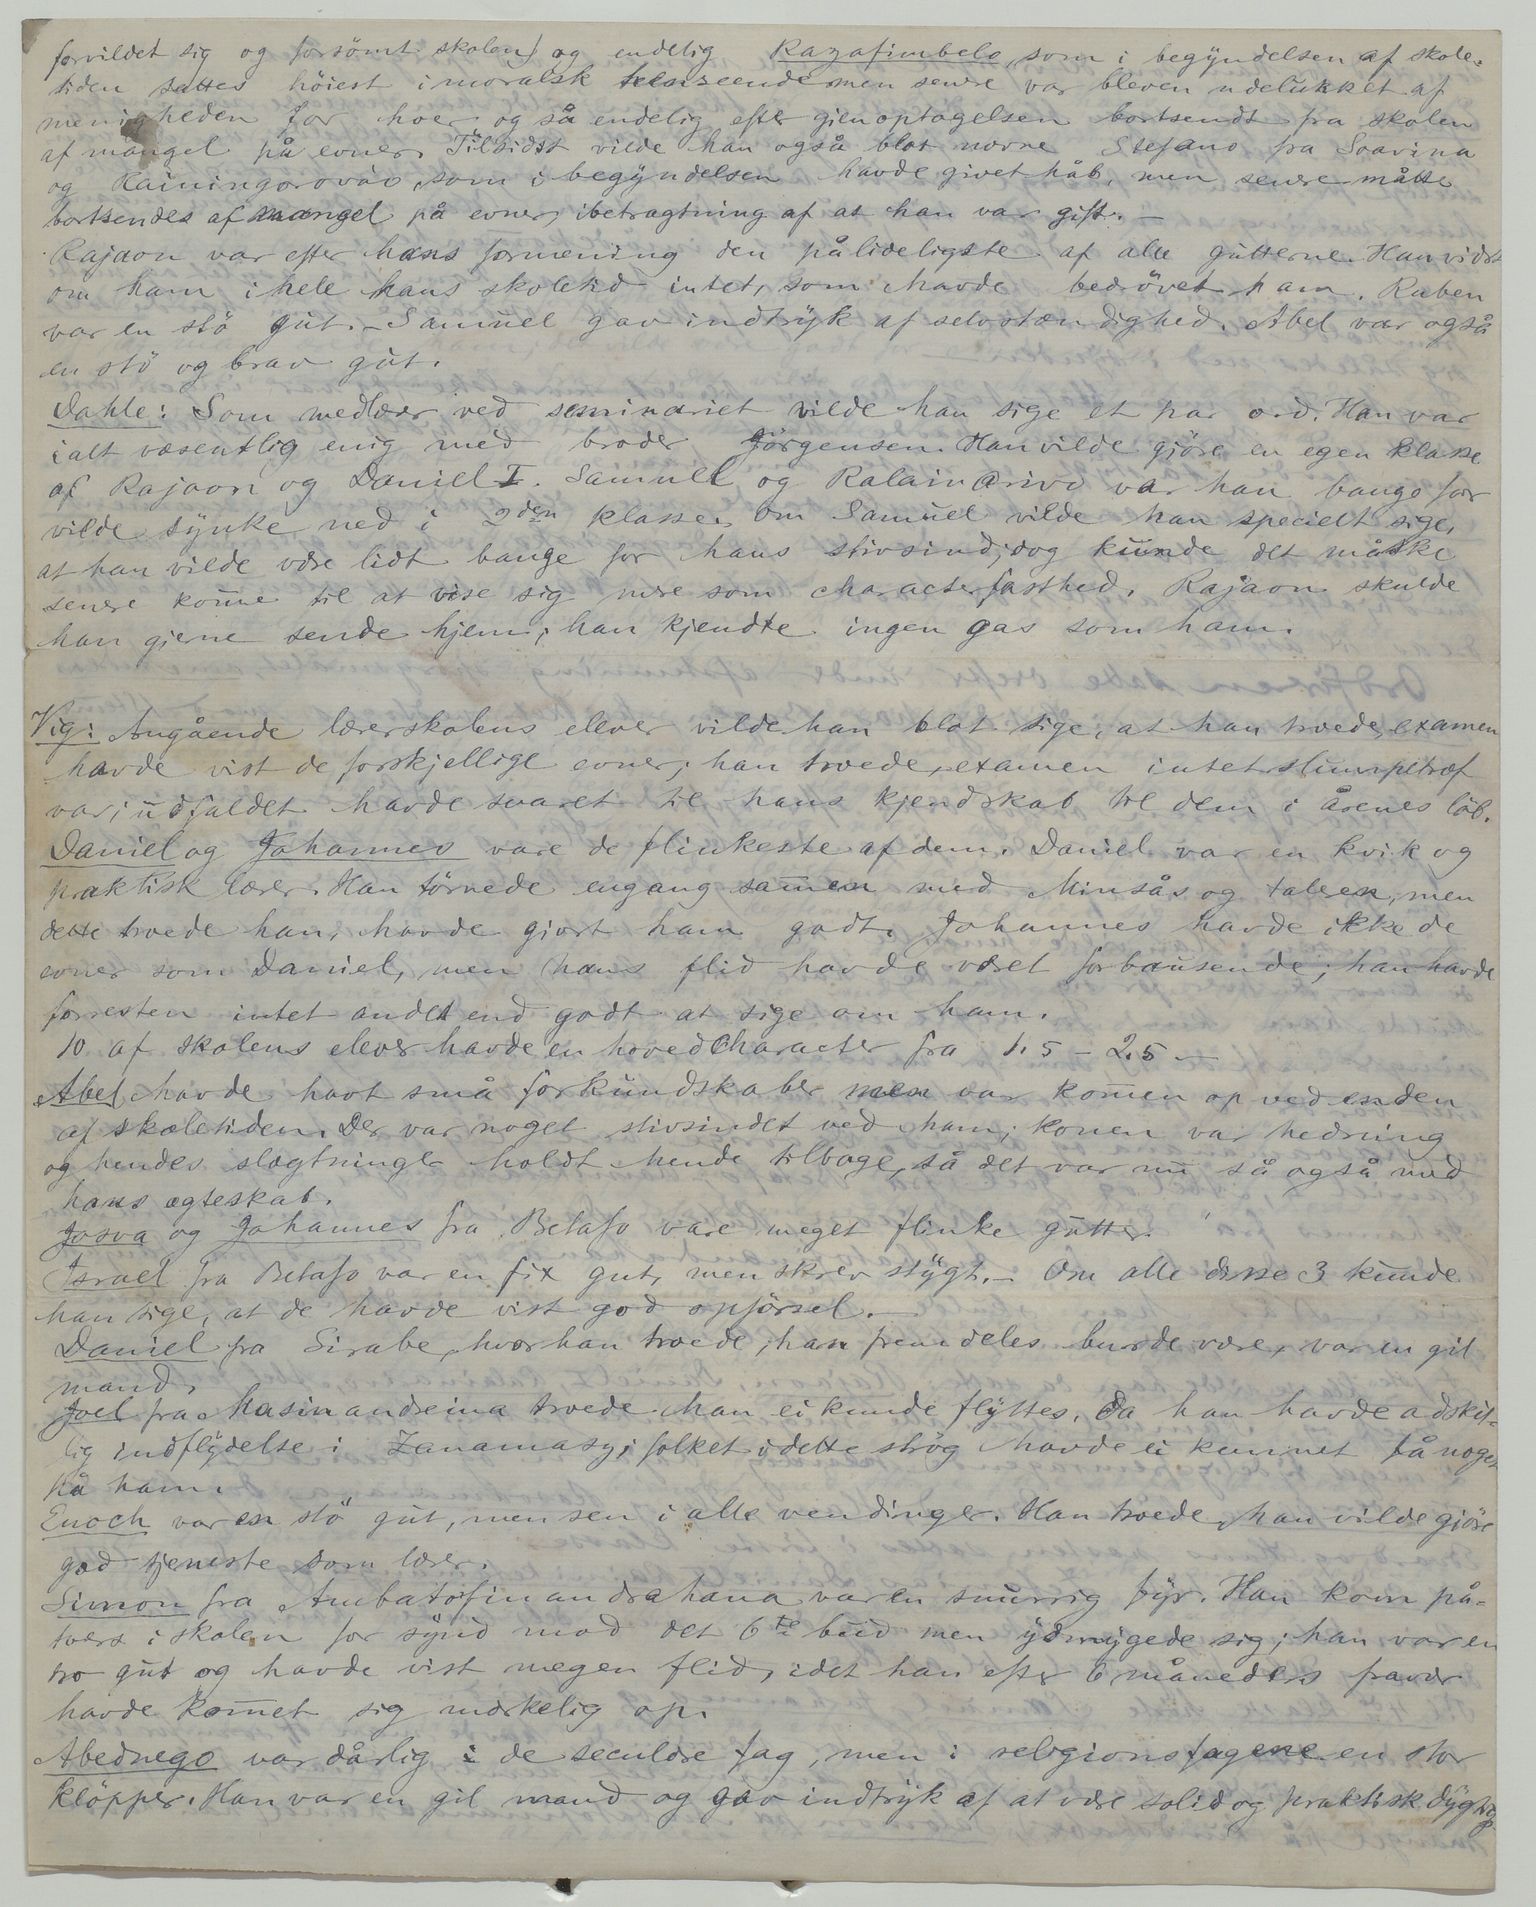 forvildet sig og forsömt skolen) og endelig Razafimbelo som i begyndelsen af skole-
tiden sattes höiest i moralsk henseende men senere var bleven udelukket af
menigheden for hoer og så endelig efter gjenoptagelsen bortsendt fra skolen
af mangel på evner. Tilsidst vilde han også blot nævne Stefano fra Soavina
og Rainingorovao, som i begyndelsen havde givet håb, men senere måtte
bortsendes af mangel på evner, ibetragtning af at han var gift. —
Rajaon var efter hans formening den pålideligste af alle gutterne. Han vidste
om ham i hele hans skoletid intet, som havde bedrövet ham. Ruben
var en stö gut. – Samuel gav indtryk af selvstændighed. Abel var også
en stö og brav gut.
Dahle: Som medlærer ved seminariet vilde han sige et par ord. Han var
ialt væsentlig enig med broder Jörgensen. Han vilde gjöre en egen klasse
af Rajaon og Daniel I. Samuel og Ralainarivo var han bange for
vilde synke ned i 2den klasse. Om Samuel vilde han specielt sige,
at han vilde være lidt bange for hans stivsind, dog kunde det måske
senere komme til at vise sig mere som characterfasthed. Rajaon skulde
han gjerne sende hjem; han kjendte ingen gas som ham.
Vig: Angående lærerskolens elever vilde han blot sige, at han troede, examen
havde vist de forskjellige evner; han troede, examen intet slumpetræf
var; udfaldet havde svaret til hans kjendskab til dem i årenes löb.
Daniel og Johannes vare de flinkeste af dem. Daniel var en kvik og
praktisk lærer. Han törnede engang sammen med Minsås og talen, men
dette troede han, havde gjort ham godt. Johannes havde ikke de
evner som Daniel, men hans flid havde været forbausende; han havde
forresten intet andet end godt at sige om ham.
10 af skolens elever havde en hovedcharacter fra 1.5 – 2.5 —
Abel havde havt små forkundskaber men var kommen op ved enden
af skoletiden. Der var noget stivsindet ved ham; konen var hedning
og hendes slægtninge holdt hende tilbage, så det var nu så også med
hans ægteskab.
Josva og Johannes fra Betafo vare meget flinke gutter.
Israel fra Betafo var en fix gut, men skrev stygt. – Om alle disse 3 kunde
han sige, at de havde vist god opförsel. —
Daniel fra Sirabe, hvor han troede, han fremdeles burde være, var en gil
mand.
Joel fra Masinandreina troede han ei kunde flyttes, da han havde adskil-
lig indflydelse i Zanamasy; folket i dette strög havde ei kunnet få noget
på ham.
Enoch var en stö gut, men sen i alle vendinger. Han troede, han vilde gjöre
god tjeneste som lærer.
Simon fra Ambatofinandrahana var en snurrig fyr. Han kom på-
tværs i skolen for synd mod det 6te bud men ydmygede sig; han var en
tro gut og havde vist megen flid, idet han efter 6 måneders fravær
havde kommet sig mærkelig op.
Abednego var dårlig i de seculære fag, men i religionsfagene en stor
klöpper. Han var en gil mand og gav indtryk af at være solid og praktisk dygtig